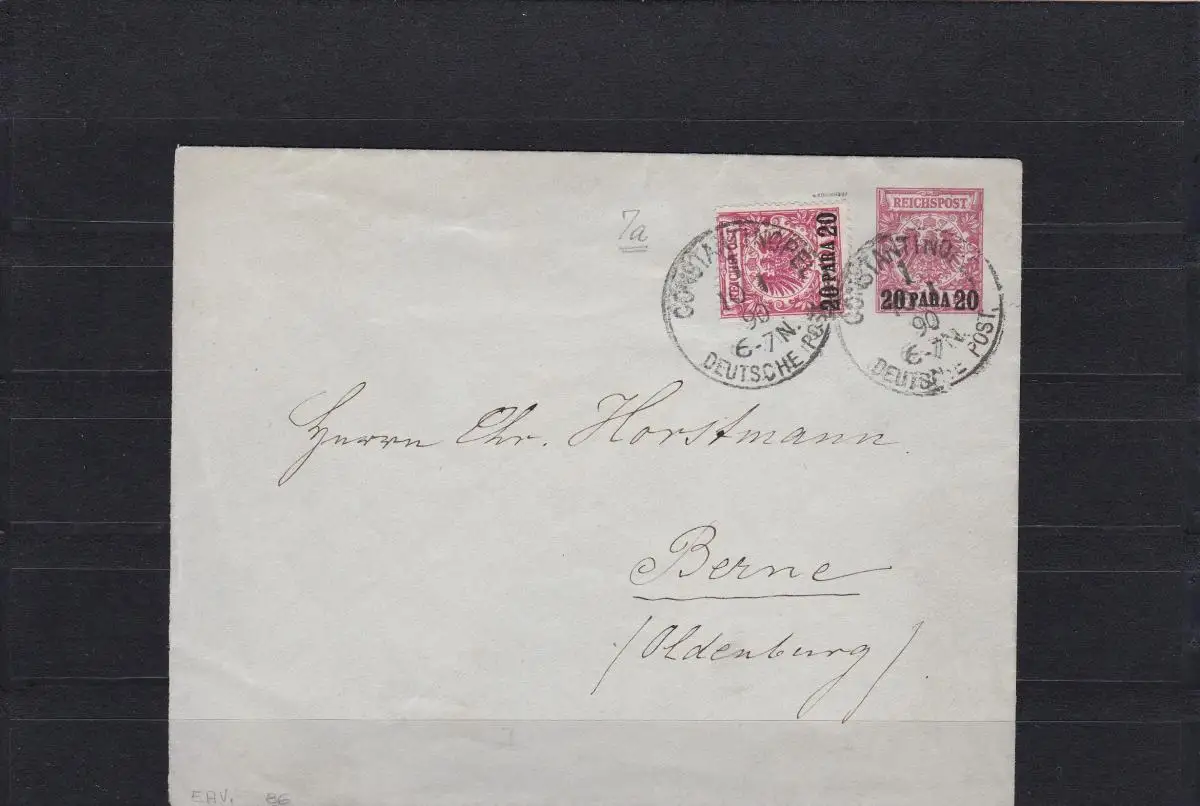 7a
REICHSPOST
20 PARA 20
20 PARA 20
CONSTANTINOPEL
90
6-7N.
DEUTSCHE POST
CONSTANTINOPEL
1
90
6-7N.
DEUTSCHE POST.
Herrn Chr. Horstmann
Berne
(Oldenburg)
86